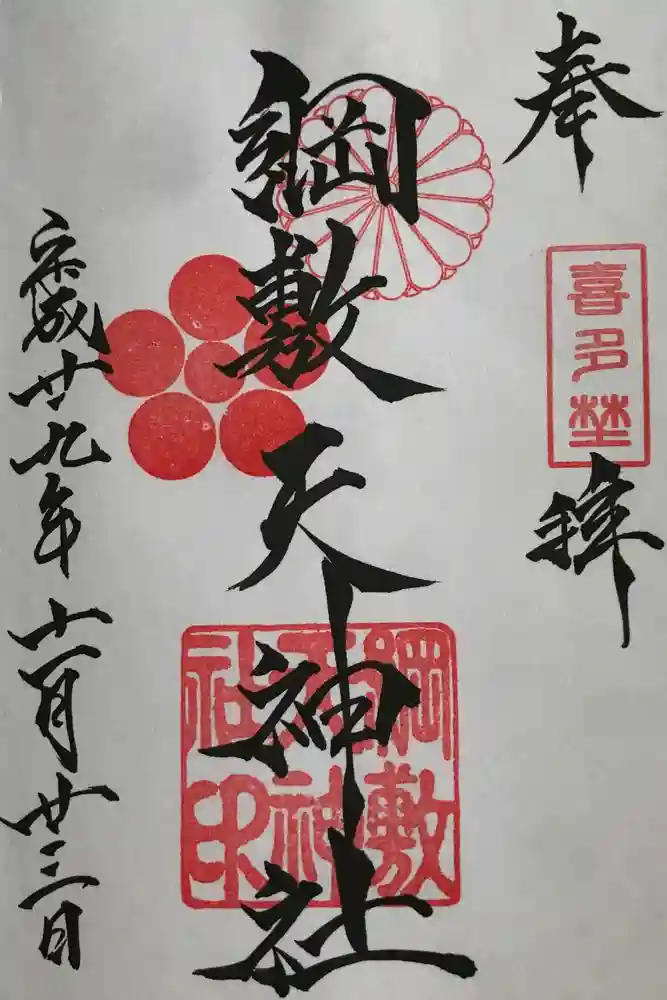 奉
喜多埜
拝
綱敷天神社
綱敷天神社印
平成廿九年十一月廿三日